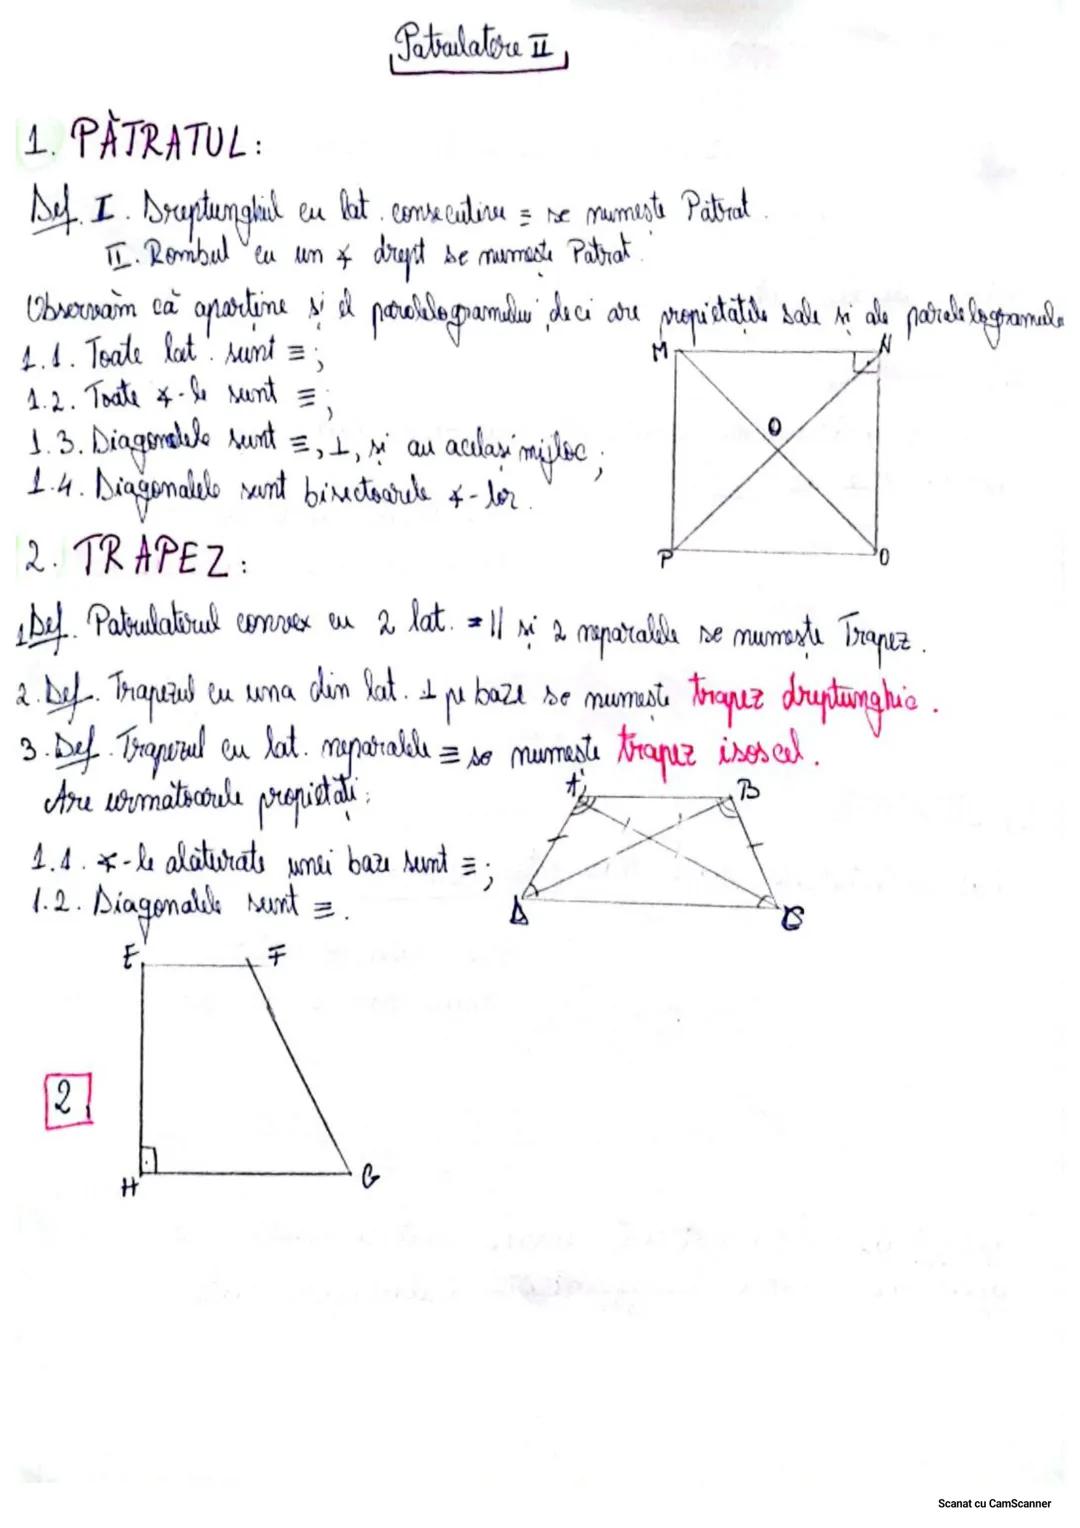 Patrulatere II
1. PĂTRATUL:
Def. I. Dreptunghiul cu lat. consecutive ≡ se numește Pătrat.
II. Rombul cu un ∢ drept se numește Pătrat.
Observăm că aparține și el paralelogramului, deci are propietățile sale și ale paralelogramulu
1.1. Toate lat. sunt ≡;
1.2. Toate ∢-le sunt ≡;
1.3. Diagonalele sunt ≡, ⊥, și au același mijloc;
1.4. Diagonalele sunt bisectoarele ∢-lor.
M N
O
P O
2. TRAPEZ:
1 Def. Patrulaterul convex cu 2 lat. = || și 2 neparalele se numește Trapez.
2. Def. Trapezul cu una din lat. ⊥ pe baze se numește trapez dreptunghic.
3. Def. Trapezul cu lat. neparalele ≡ se numește trapez isoscel.
Are următoarele propietăți:
A B
1.1. ∢-le alăturate unei baze sunt ≡;
1.2. Diagonalele sunt ≡.
D C
E F
2
H G
Scanat cu CamScanner